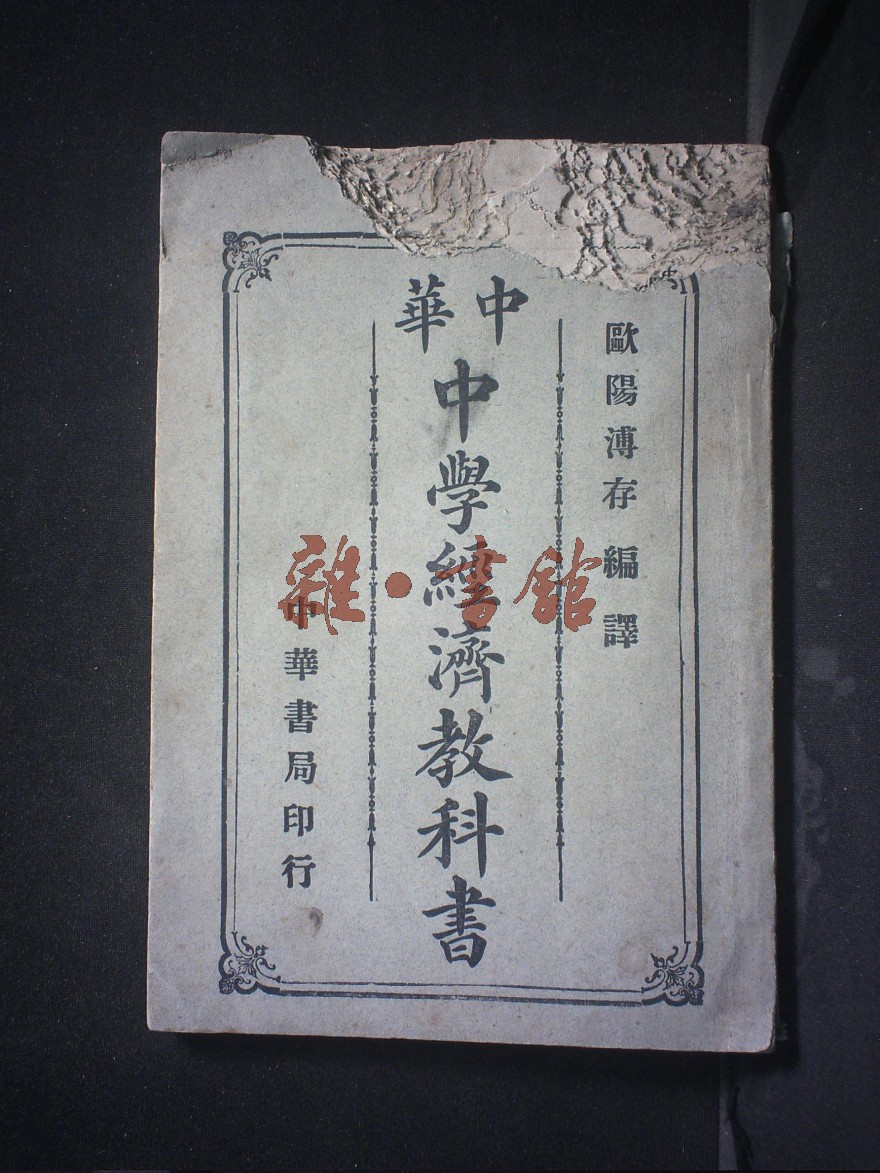 歐陽溥存編譯
中華
中學經濟教科書
中華書局印行
雜·書館